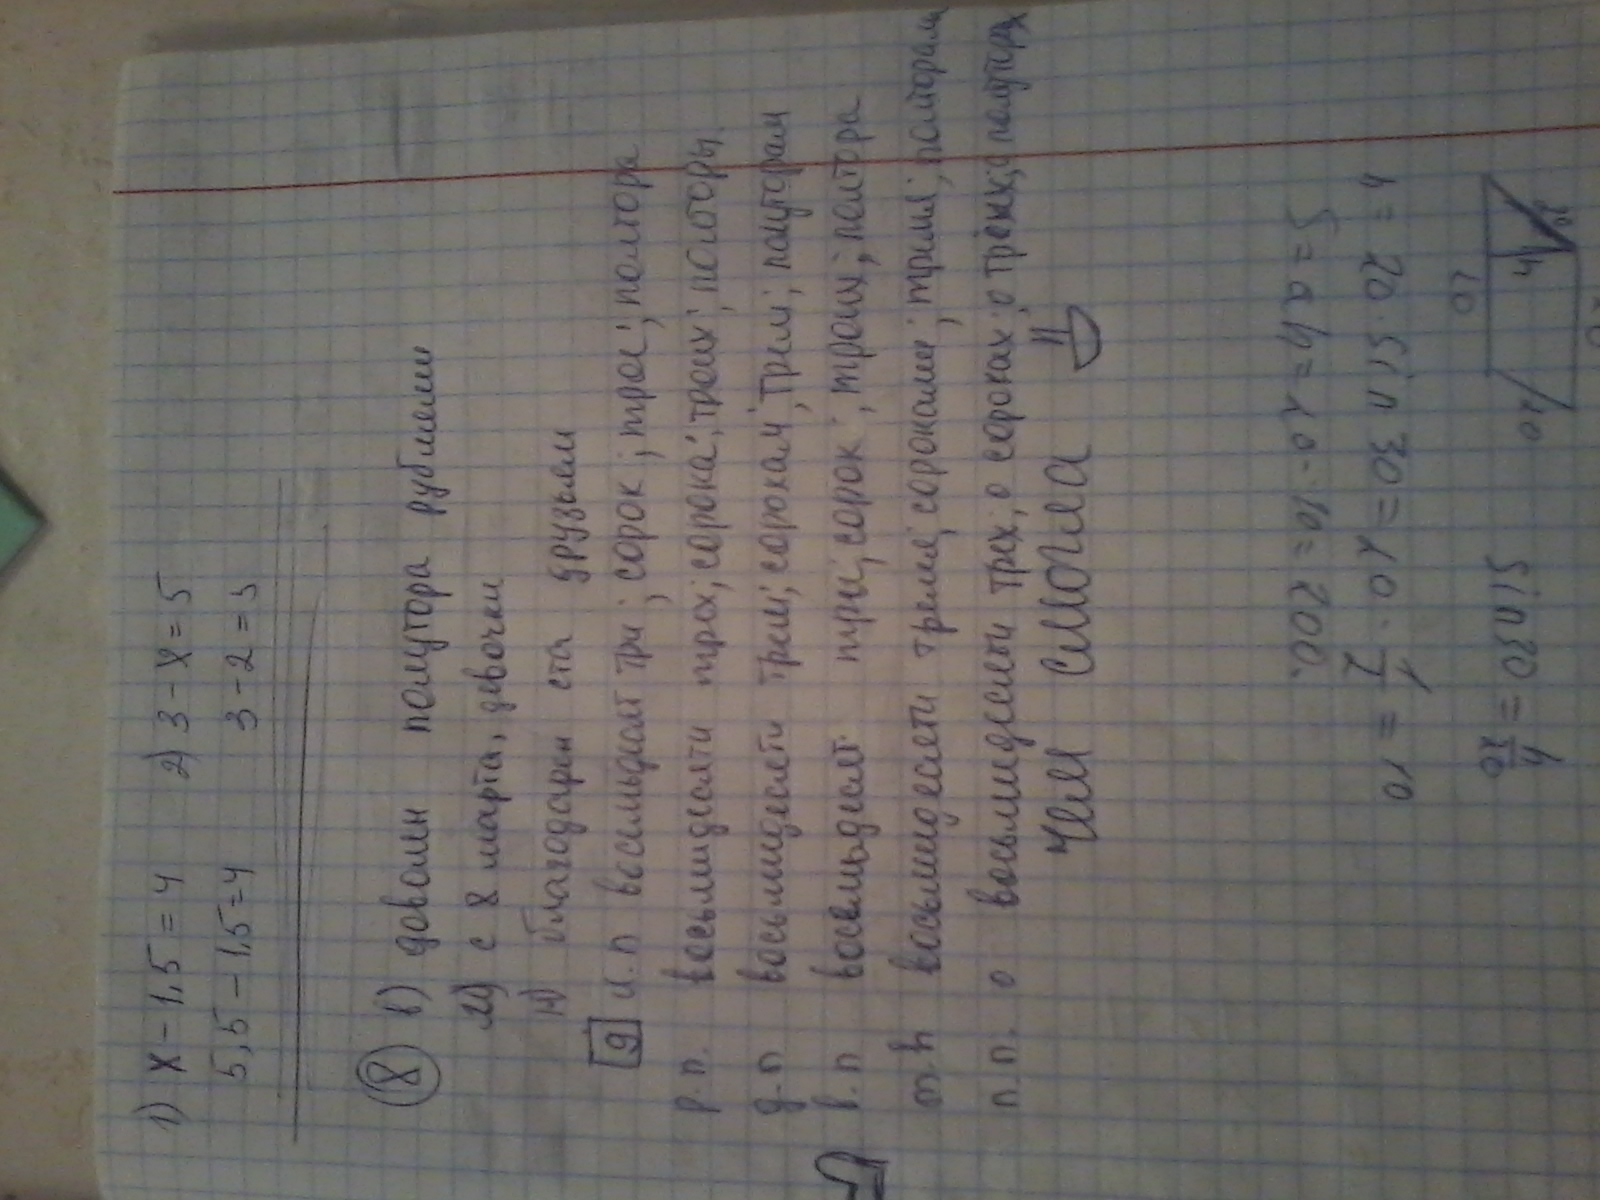 1) x - 1,5 = 4 2) 3 - x = 5
5,5 - 1,5 = 4 3 - 2 = 5
8 в) доволен полутора рублями
м) с 8 марта, девочки
н) благодарен ста друзьям
9 и.п восемьдесят три; сорок; трое; полтора
р.п. восьмидесяти трех; сорока; троих; полторы.
д.п восьмидесяти трем; сорокам; трем; полуторам
в.п восемьдесят три; сорок; трои; полтора
т.п восьмидесяти тремя; сорокаме; тремя; полторам
п.п. о восьмидесяти трех; о сороках; о трёхх; о полуторах
Чем смогла
20
20
h
sin30 = h/20
h = 20 · sin 30 = 20 · 1/2 = 10
S = ah = 20 · 10 = 200.